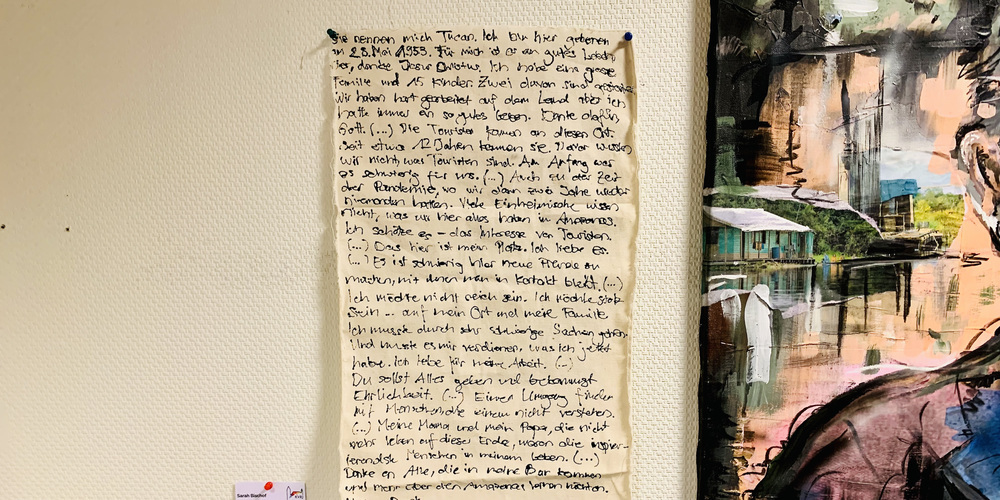 Sie nennen mich Tucan. Ich bin hier geboren
in 23. Mai 1953. Für mich ist es ein gutes Leben
hier, danke Jesus Christus. Ich habe eine grosse
Familie und 15 Kinder. Zwei davon sind
Wir haben hart gearbeitet auf dem Land aber ich
hatte immer ein so gutes Leben. Danke dafür
Gott. (...) Die Touristen kamen an diesen Ort.
Seit etwa 12 Jahren kommen sie. Davor wussten
wir nicht, was Touristen sind. Am Anfang war
es schwierig für uns. (...) Auch zu der Zeit
der Pandemie, wo wir dann zwei Jahre wieder
niemanden hatten. Viele Einheimische wissen
nicht, was wir hier alles haben in Amazonas.
Ich schätze es – das Interesse von Touristen.
(...) Das hier ist mein Platz. Ich liebe es.
(...) Es ist schwierig hier neue Freunde zu
machen, mit denen man in Kontakt bleibt. (...)
Ich möchte nicht reich sein. Ich möchte stolz
sein ... auf mein Ort und meine Familie
Ich musste durch sehr schwierige Sachen gehen.
Und musste es mir verdienen, was ich jetzt
habe. Ich lebe für meine Arbeit. (...)
Du sollst Alles geben und bekommst
Ehrlichkeit. (...) Einen Umgang finden
mit Menschen, die einem nicht verstehen.
(...) Meine Mama und mein Papa, die nicht
mehr leben auf dieser Erde, waren die inspir-
ierendste Menschen in meinem Leben. (...)
Danke an Alle, die in meine Bar kommen
und mehr über den Amazonas lernen möchten.
Sarah Bischof